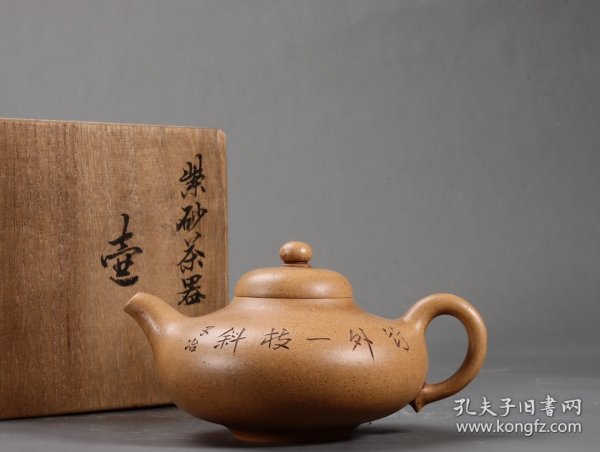 紫砂茶器
壺
竹外一枝斜
孔夫子旧书网
www.kongfz.com